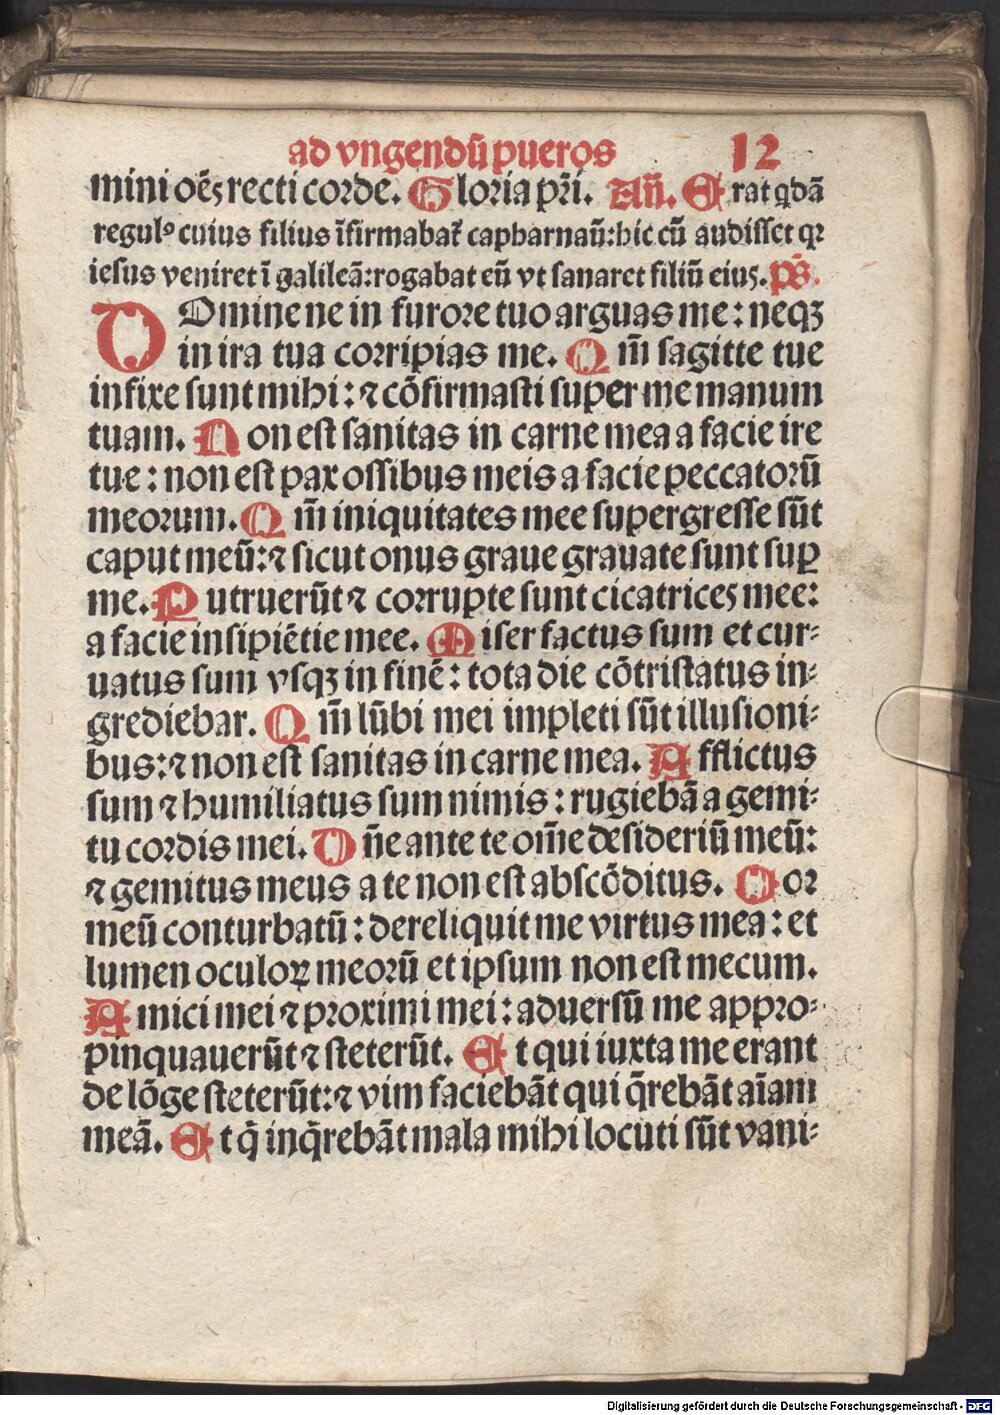 ad vngendū pueros 12
mini oēs recti corde. Gloria pr̄i. Añ. Erat qdā
regulꝰ cuius filius īfirmabat̄ capharnaū: hic cū audisset qꝛ
iesus veniret ī galileā: rogabat eū vt sanaret filiū eius. ps̄.
DOmine ne in furore tuo arguas me: neqꝫ
in ira tua corripias me. Qm̄ sagitte tue
infixe sunt mihi: ⁊ cōfirmasti super me manum
tuam. Non est sanitas in carne mea a facie ire
tue: non est pax ossibus meis a facie peccatorū
meorum. Qm̄ iniquitates mee supergresse sūt
caput meū: ⁊ sicut onus graue grauate sunt suꝑ
me. Putruerūt ⁊ corrupte sunt cicatrices mee:
a facie insipiētie mee. Miser factus sum et cur⸗
uatus sum vsqꝫ in finē: tota die cōtristatus in⸗
grediebar. Qm̄ lūbi mei impleti sūt illusioni⸗
bus: ⁊ non est sanitas in carne mea. Afflictus
sum ⁊ humiliatus sum nimis: rugiebā a gemi⸗
tu cordis mei. Dn̄e ante te om̄e desideriū meū:
⁊ gemitus meus a te non est abscōditus. Cor
meū conturbatū: dereliquit me virtus mea: et
lumen oculoꝝ meorū et ipsum non est mecum.
Amici mei ⁊ proximi mei: aduersū me appro⸗
pinquauerūt ⁊ steterūt. Et qui iuxta me erant
de lōge steterūt: ⁊ vim faciebāt qui q̄rebāt aīam
meā. Et q̇ inq̄rebāt mala mihi locuti sūt vani⸗
Digitalisierung gefördert durch die Deutsche Forschungsgemeinschaft - DFG